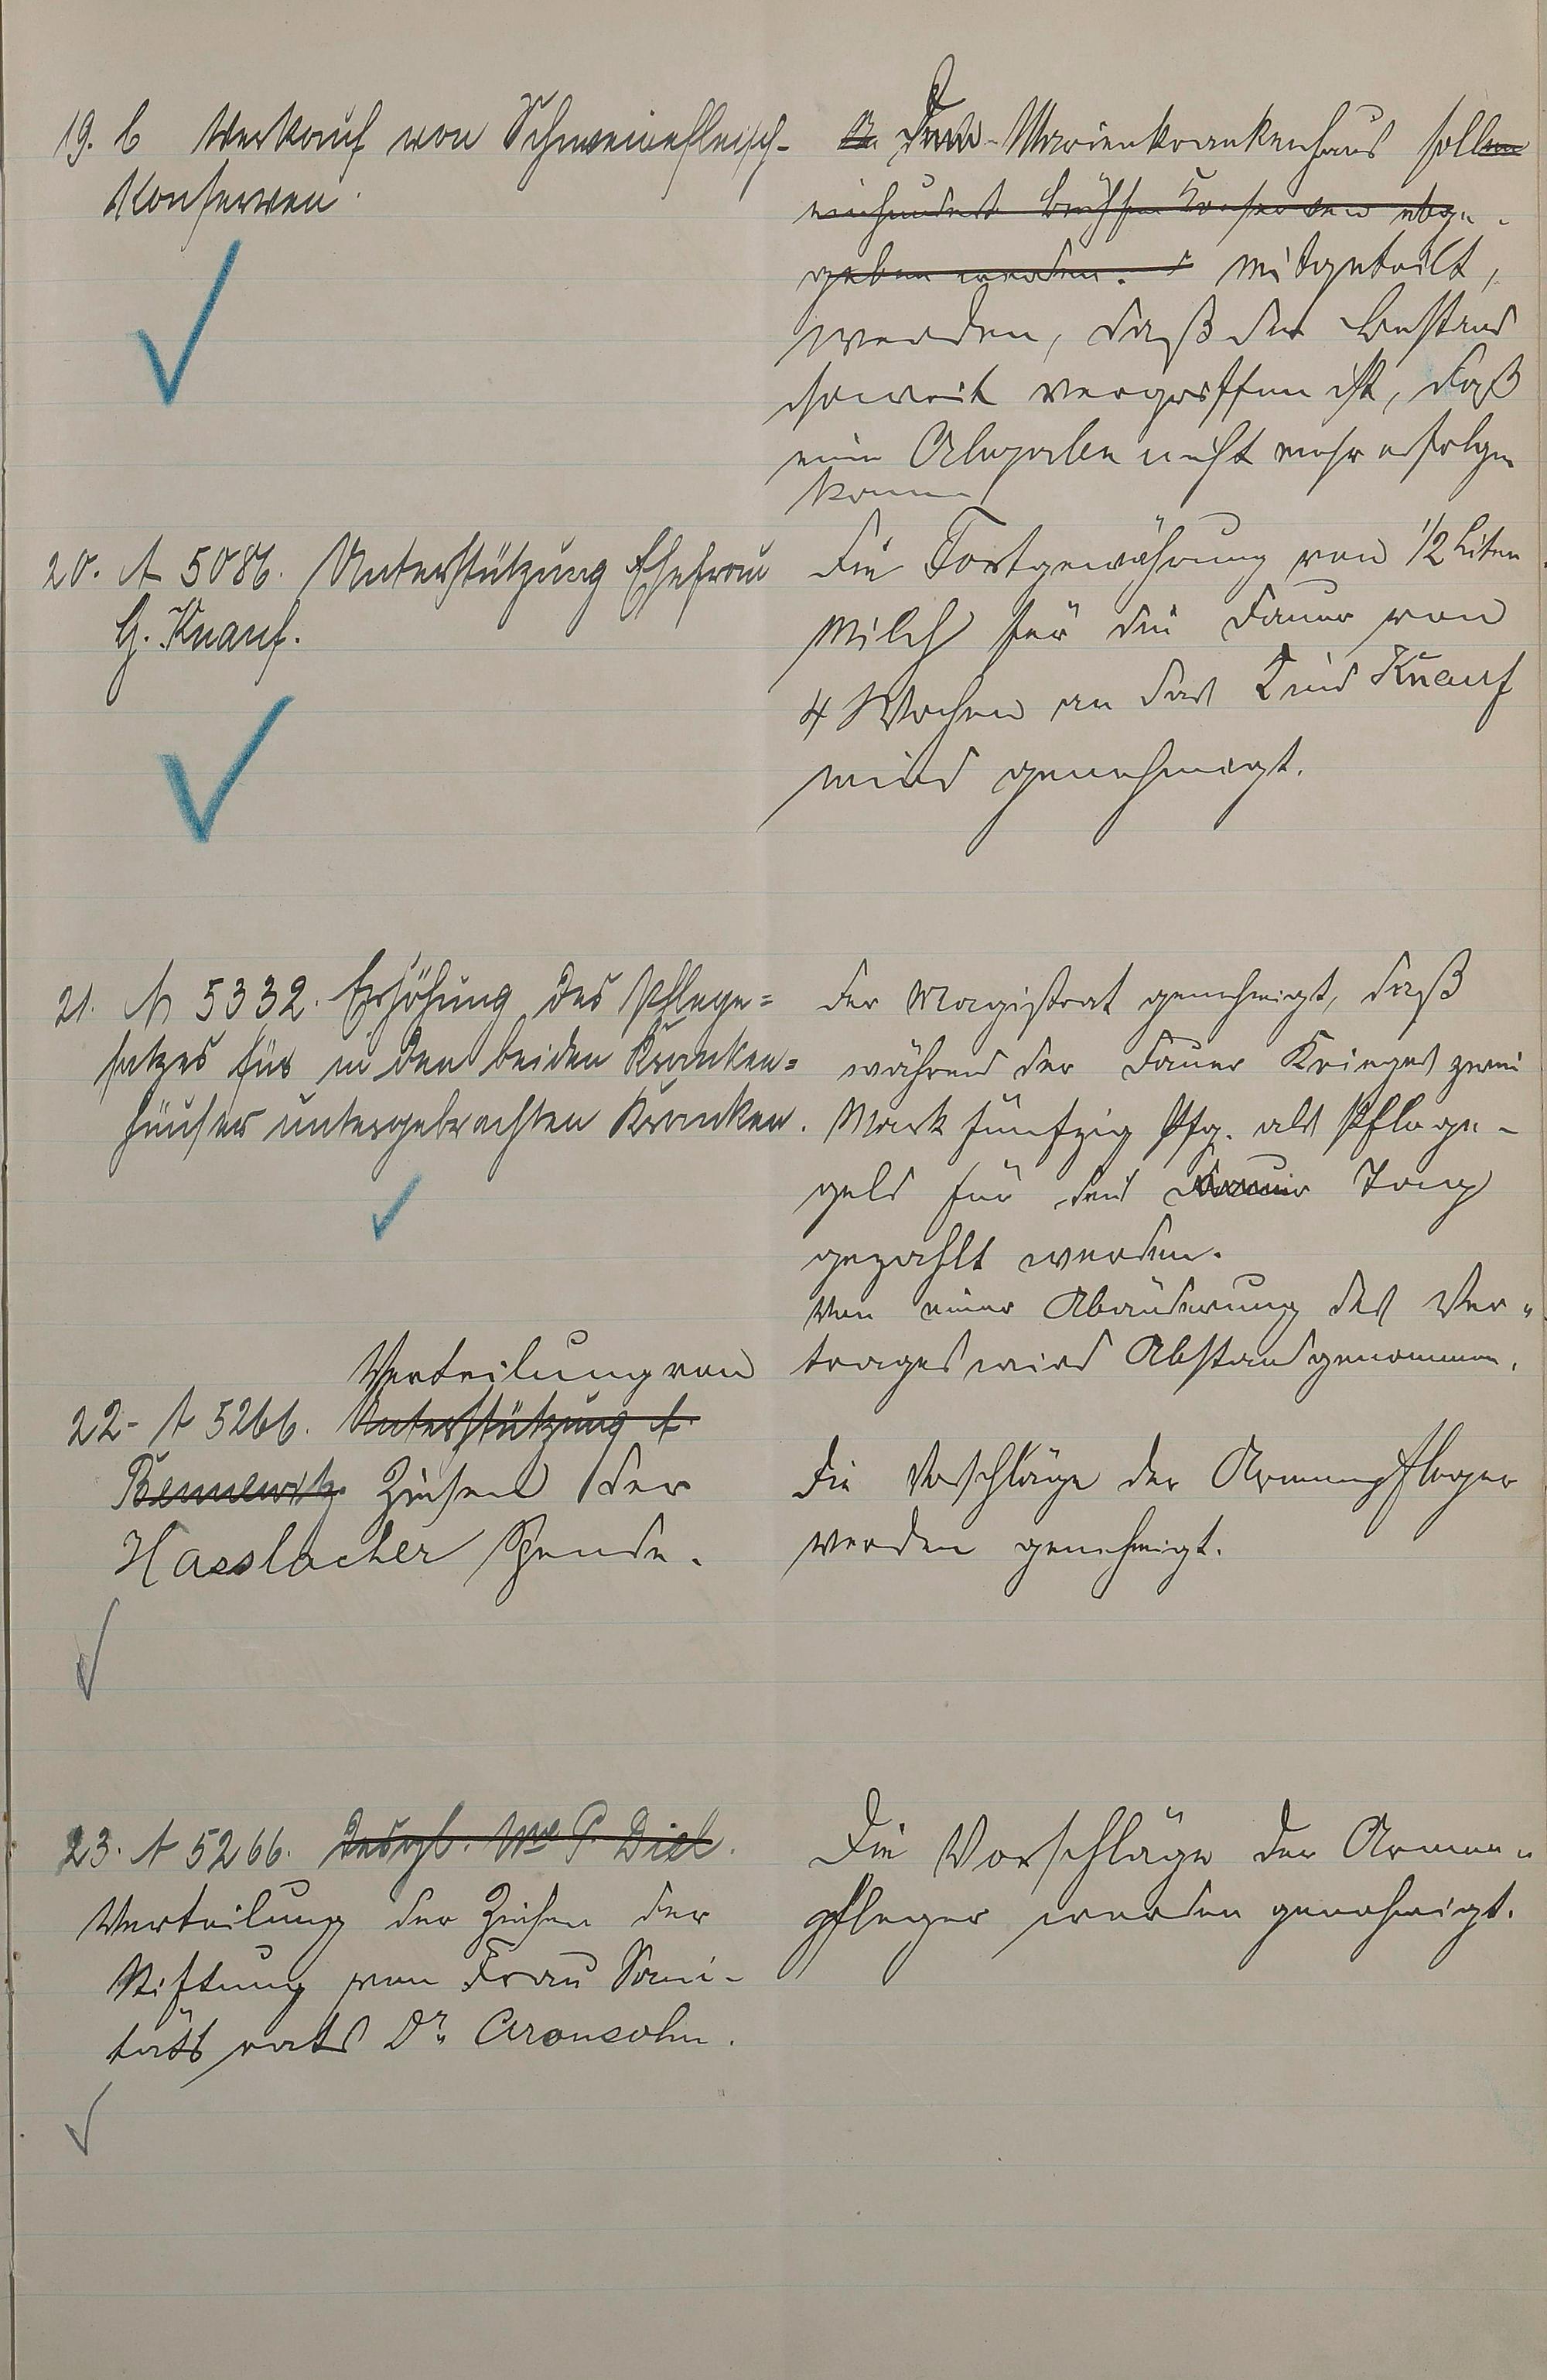 19. b Verkauf von Schweinefleisch-
Konserven.
An Dem Marienkrankenhaus sollen
einhundert Büchsen Konserven abge-
geben werden. mitgeteilt,
werden, daß der Bestand
soweit vergriffen ist, daß
eine Abgabe nicht mehr erfolgen
kann
20. A 5086. Unterstützung Ehefrau
G. Knauf.
Die Fortgewährung von 1/2 Liter
Milch für die Dauer von
4 Wochen an das Kind Knauf
wird genehmigt.
21. A 5332. Erhöhung des Pflege=
satzes für in den beiden Kranken=
häuser untergebrachten Kranken.
Der Magistrat genehmigt, daß
während der Dauer Krieges zwei
Mark fünfzig Pfg. als Pflege-
geld für den Tag
gezahlt werden.
Von einer Abänderung des Ver-
trages wird Abstand genommen.
Verteilung von
22- A 5266. Unterstützung A.
Bennewitz. Zinsen der
Hasslacher Spende.
Die Vorschläge der Armenpfleger
werden genehmigt.
23. A 5266. Desgl. Wwe P. Diel.
Verteilung der Zinsen der
Stiftung von Frau Sani-
täts rats Dr. Aronsohn.
Die Vorschläge der Armen-
pfleger werden genehmigt.